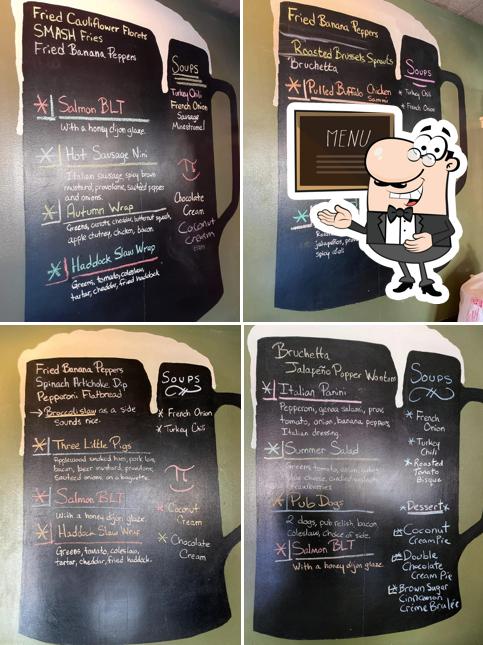 Fried Cauliflower Florets
SMASH Fries
Fried Banana Peppers
Salmon BLT
With a honey dijon glaze.
Hot Sausage Nini
Italian sausage, spicy brown
mustard, provolone, sautéed peppers
and onions.
Autumn Wrap
Greens, carrots, cheddar, butternut squash,
apple chutney, chicken, bacon
Haddock Slaw Wrap
Greens, tomato, coleslaw,
tartar, cheddar, fried haddock
Soups
Turkey Chili
French Onion
Sausage
Minestrone
π
Chocolate
Cream
Coconut
Cream
Fried Banana Peppers
Roasted Brussels Sprouts
Bruchetta
Pulled Buffalo Chicken
Sammi
jalapeños,
Soups
Turkey Chili
French Onion
MENU
Fried Banana Peppers
Spinach Artichoke Dip
Pepperoni Flatbread
Broccoli slaw as a side
sounds nice.
Three Little Pigs
Applewood smoked ham, pork loin,
bacon, beer mustard, provolone,
sautéed onions on a baguette.
Salmon BLT
With a honey dijon glaze.
Haddock Slaw Wrap
Greens, tomato, coleslaw,
tartar, cheddar, fried haddock.
Soups
* French Onion
* Turkey Chili
π
* Coconut
Cream
* Chocolate
Cream
Bruchetta
Jalapeño Popper Wontons
Italian Panini
Pepperoni, genoa salami, prov,
tomato, onion, banana peppers
Italian dressing.
Summer Salad
Greens, tomato, onion,
strawberries
Pub Dogs
2 dogs, pub relish, bacon
coleslaw, choice of side.
Salmon BLT
With a honey dijon glaze.
Soups
* French
Onion
* Turkey
Chili
* Roasted
Tomato
Bisque
*Dessert*
Coconut
Cream Pie
Double
Chocolate
Cream Pie
Brown Sugar
Cinnamon
Crème Brulée